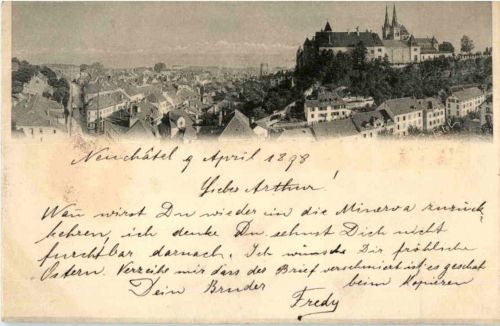 Neuchâtel 9 April 1898
Lieber Arthur!
Wan wirst Du wieder in die Minerva zurück
kehren, ich denke Du sehnst Dich nicht
furchtbar darnach. Ich wünsche Dir fröhliche
Ostern. Verzeihe mir dass des Brief verschmiert ist, es geschah
Dein Bruder beim Kopieren
Fredy